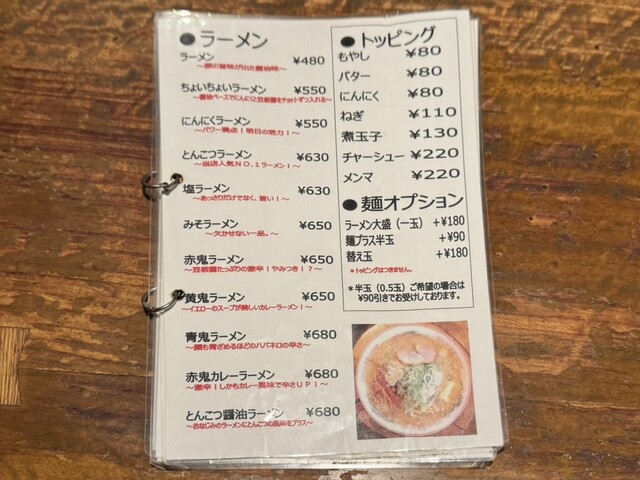 ●ラーメン
ラーメン ¥480
～豚の旨味が出た醤油味～
ちょいちょいラーメン ¥550
～醤油ベースでにんにくと豆板醤をチョットずつ入れる～
にんにくラーメン ¥550
～パワー満点！明日の活力！～
とんこつラーメン ¥630
～当店人気NO.1ラーメン！～
塩ラーメン ¥630
～あっさりだけでなく、旨い！～
みそラーメン ¥650
～欠かせない一品。～
赤鬼ラーメン ¥650
～豆板醤たっぷりの激辛！やみつき！？～
黄鬼ラーメン ¥650
～イエローのスープが美しいカレーラーメン！～
青鬼ラーメン ¥680
～顔も青ざめるほどのハバネロの辛さ～
赤鬼カレーラーメン ¥680
～激辛！しかもカレー風味で辛さUP！～
とんこつ醤油ラーメン ¥680
～おなじみのラーメンにとんこつの風味をプラス～
●トッピング
もやし ¥80
バター ¥80
にんにく ¥80
ねぎ ¥110
煮玉子 ¥130
チャーシュー ¥220
メンマ ¥220
●麺オプション
ラーメン大盛（一玉） +¥180
麺プラス半玉 +¥90
替え玉 +¥180
*トッピングはつきません。
*半玉（0.5玉）ご希望の場合は
¥90引きでお受けしております。